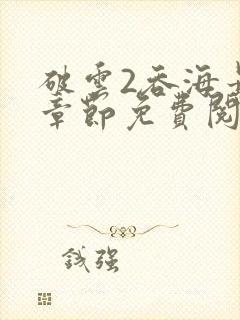 破雲2吞海
章節免費閱
錢強